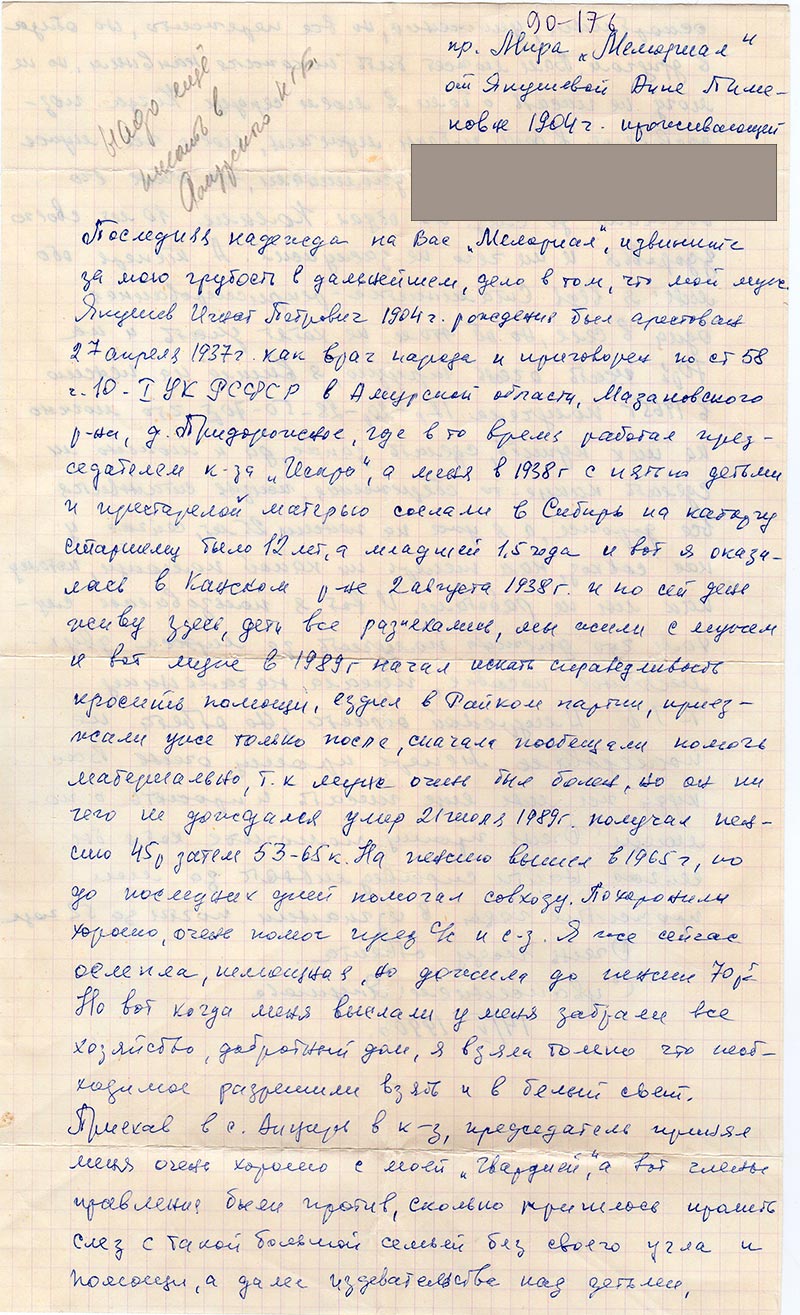 90-176
пр. Мира „Мемориал"
от Якушевой Анне Пиме-
новне 1904 г. проживающей
надо ещё
писать в
Амурского КГБ.
Последняя надежда на Вас „Мемориал", извините
за мою грубость в дальнейшем, дело в том, что мой муж
Якушев Игнат Петрович 1904 г. рождения был арестован
27 апреля 1937 г. как враг народа и приговорен по ст 58
ч. 10 - I УК РСФСР в Амурской области, Мазановского
р-на, д. Придорожное, где в то время работал пред-
седателем к-за „Искра", а меня в 1938 г с пятью детьми
и престарелой матерью сослали в Сибирь на каторгу
старшему было 12 лет, а младшей 1,5 года и вот я оказа-
лась в Канском р-не 2 августа 1938 г. и по сей день
живу здесь, дети все разъехались, мы жили с мужем
и вот муж в 1989 г начал искать справедливость
просить помощи, ездил в Райком партии, приез-
жали уже только после, сначала пообещали помочь
материально, т. к муж очень был болен, но он ни
чего не дождался умер 21 июля 1989 г. получал пен-
сию 45 р затем 53-65 к. На пенсию вышел в 1965 г, но
до последних дней помогал совхозу. Похоронили
хорошо, очень помог пред с/с и с-з. Я же сейчас
ослепла, немощная, но дожила до пенсии 70 р.
Но вот когда меня выслали у меня забрали все
хозяйство, добротный дом, я взяла только что необ-
ходимое разрешили взять и в белый свет.
Приехав в с. Анцирь в к-з, председатель принял
меня очень хорошо с моей „Гвардией", а вот члены
правления были против, сколько пришлось пролить
слез с такой большой семьей без своего угла и
помощи, а далее издевательства над детьми,